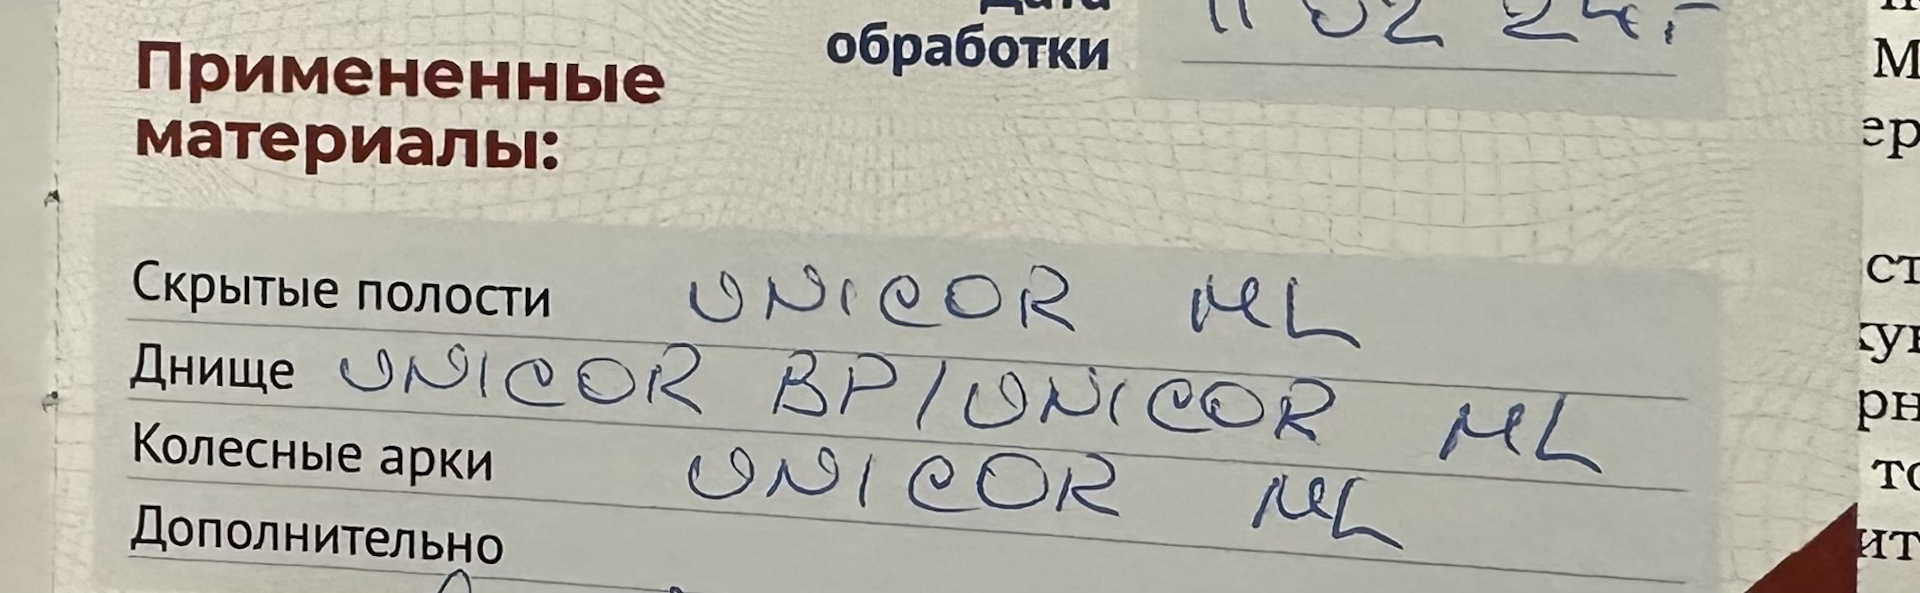 Дата
обработки 11 02 24г
Примененные
материалы:
Скрытые полости UNICOR ML
Днище UNICOR BP/UNICOR ML
Колесные арки UNICOR ML
Дополнительно
М
ер
ст
кун
рн
то
ит